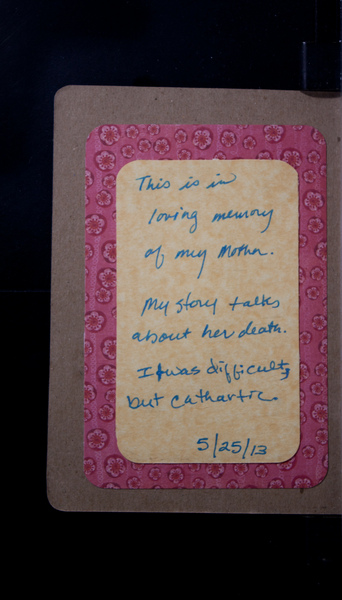 This is in
loving memory
of my Mother.
My story talks
about her death.
It was difficult,
but cathartic.
5/25/13